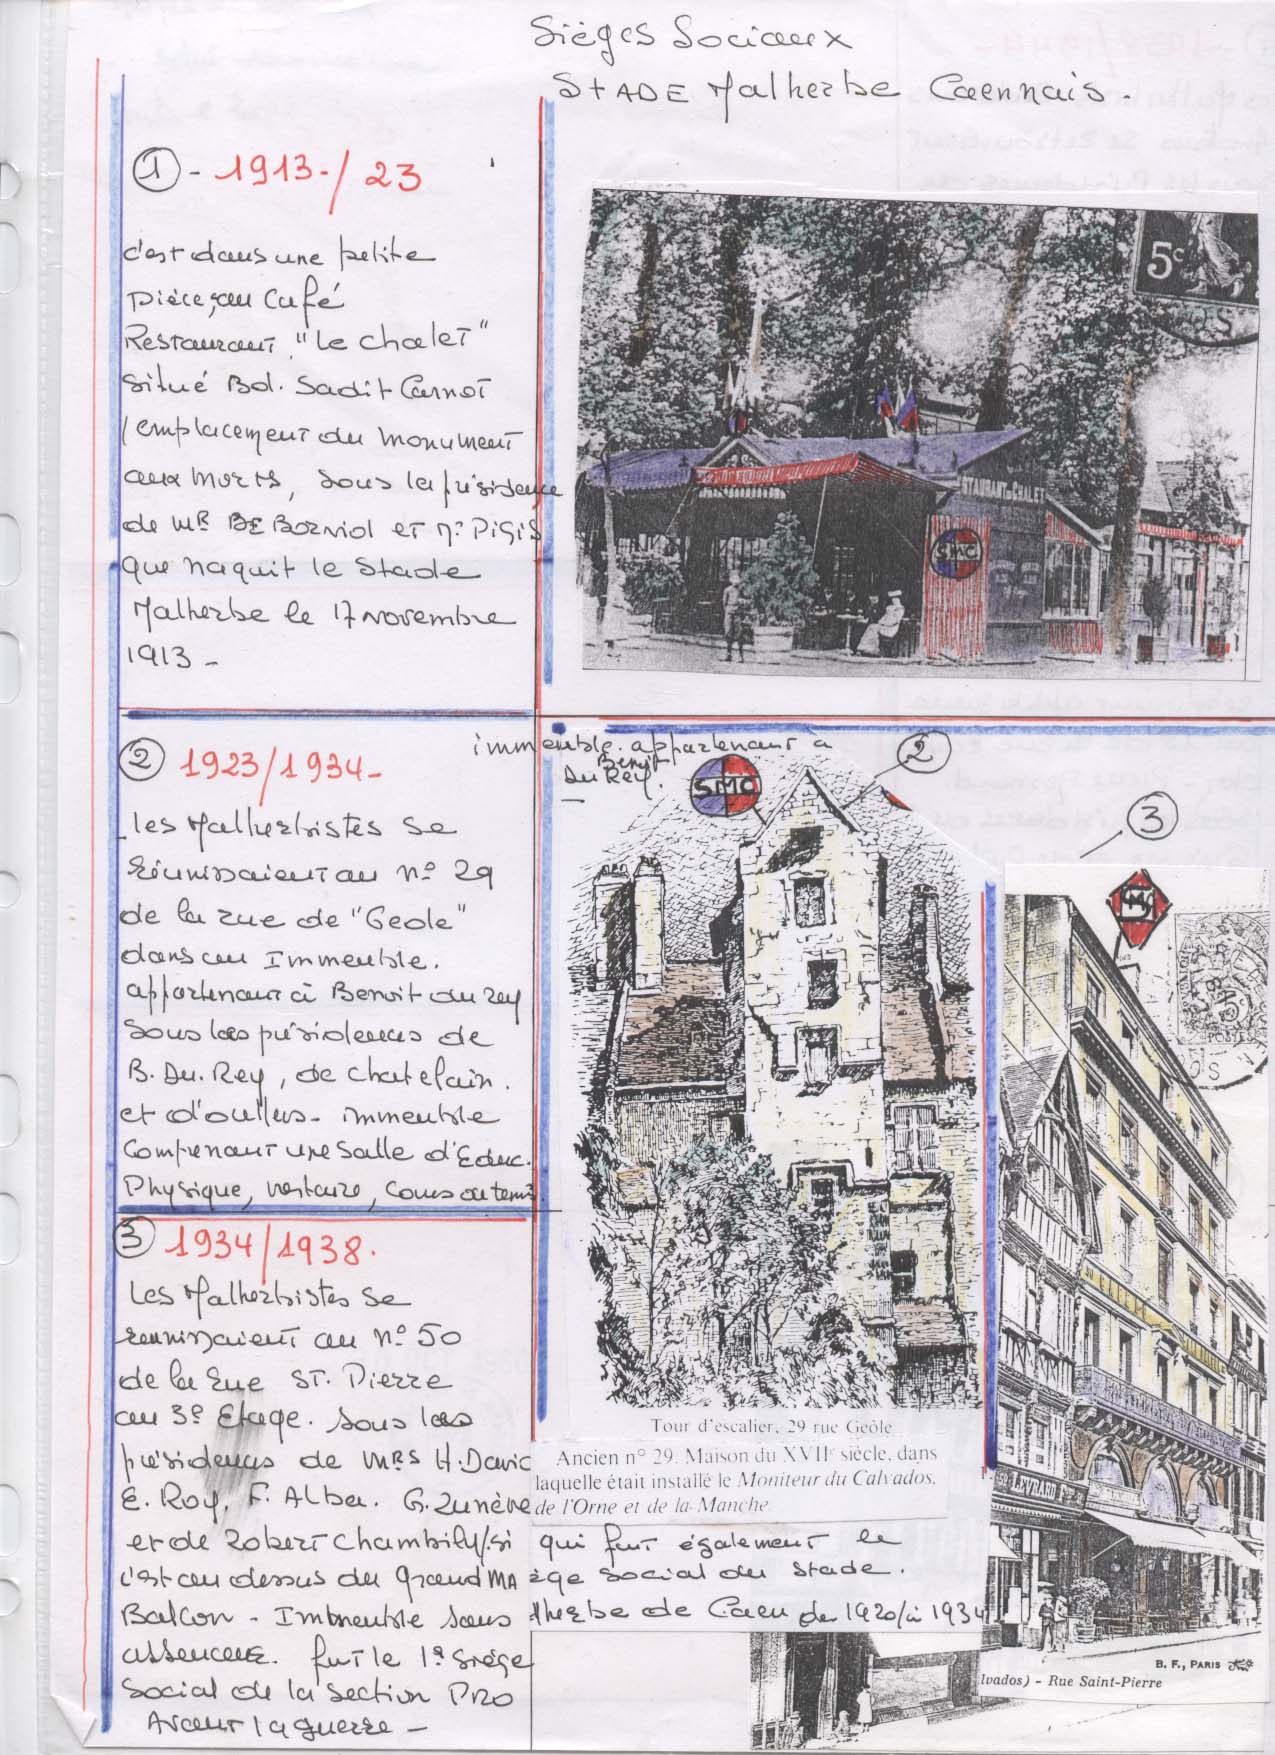 Sièges Sociaux
STADE Malherbe Caennais.
① - 1913-/23
c'est dans une petite
pièce, au Café
Restaurant "Le chalet"
situé Bd. Sadit Carnot
/emplacement du monument
aux morts, sous la présidence
de Mr DE Borniol et M. Pigis
que naquit le Stade
Malherbe le 17 novembre
1913 -
5c
SMC
② 1923/1934-
Les Malherbistes se
réunissaient au n° 29
de la rue de "Geole"
dans un Immeuble.
appartenant à Benoit du rey
sous les présidences de
B. Du. Rey, de chatelain.
et d'oullus- immeuble
Comprenant une Salle d'Educ.
Physique, vestiaire, Cours de tennis.
immeuble. appartenant à
Benoit
Du Rey.
②
SMC
③
SMC
Tour d'escalier, 29 rue Geôle
Ancien n° 29. Maison du XVIIe siècle, dans
laquelle était installé le Moniteur du Calvados,
de l'Orne et de la Manche
qui fut également le
ège social du Stade.
lherbe de Caen de 1920/à 1934
③ 1934/1938.
Les Malherbistes se
reunissaient au n° 50
de la Rue ST. Pierre
au 3e Etage. Sous les
présidences de MRS H. David
E. Roy, F. Alba. G. Zunève
et de Robert Chambily/.si
c'est au dessus du grand MA
Balcon - Immeuble sans
fut le 1er siège
Social de la section PRO
Avant la guerre -
B. F., PARIS
lvados) - Rue Saint-Pierre